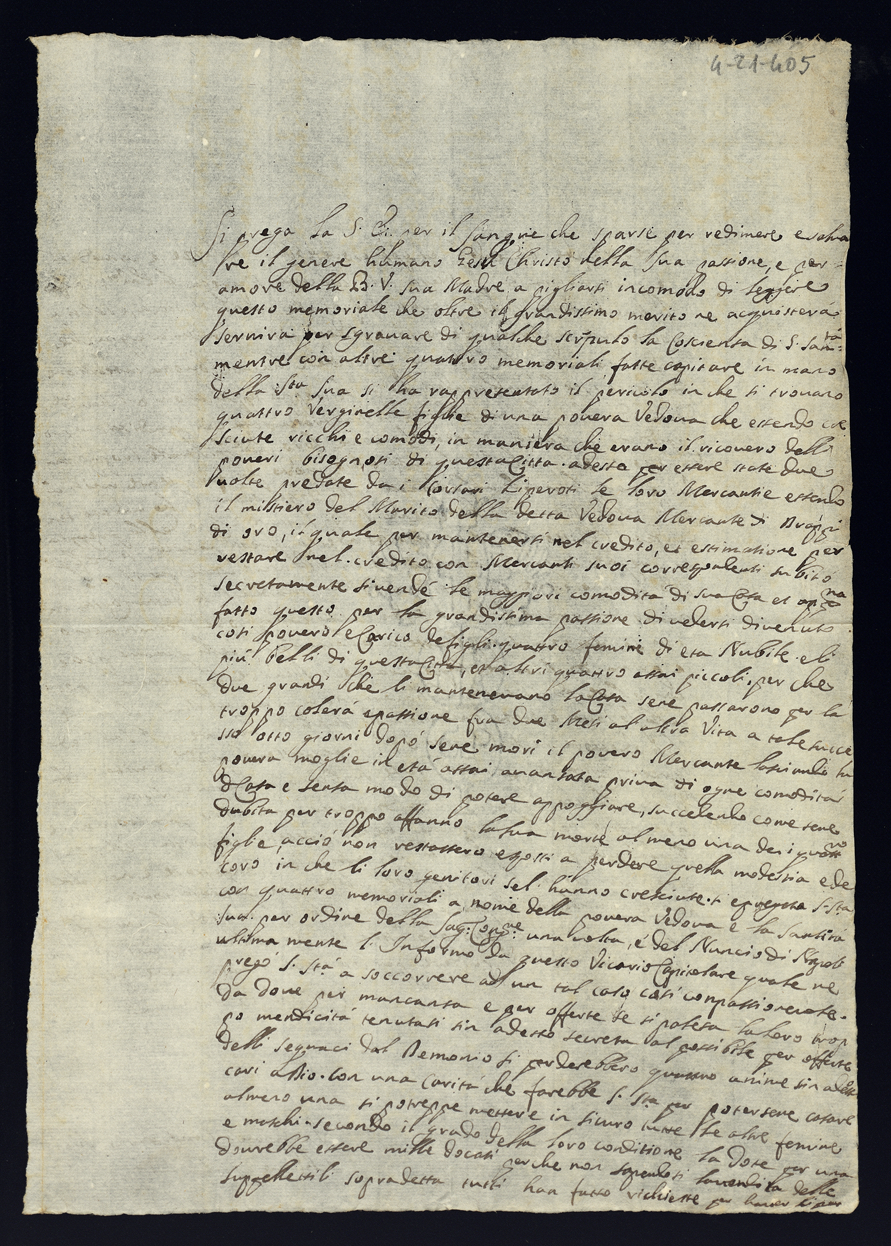 4-21-405
Si prega la S. per il sangue che sparse per redimere e salva
re il genere humano Giesù Christo nella sua passione, e per
amore della B. V. sua Madre a pigliarsi incomodo di leggere
questo memoriale che oltre il grandissimo merito ne acquisterà
servirà per sgravare di qualche scrupulo la Coscienza di S. San.tà
mentre con altri quattro memoriali fatte capitare in mano
della S.ta Sua si ha rappresentato il pericolo in che si trovano
quattro Verginelle figlie di una povera Vedova che essendo cre
sciute ricchi e comodi, in maniera che erano il ricovero delli
poveri bisognosi di questa Citta. adesso per essere state due
volte predate da i Corsari le loro Mercantie essendo
il mistiero del Marito della detta Vedova Mercante di Drappi
di oro, il quale per mantenersi nel credito, et estimatione per
restare nel credito con Mercanti suoi corrispondenti subito
secretamente si vendé le maggiori comodità di sua Casa et
fatto questo per la grandissima passione di vedersi divenuto
così povero e Carico de figli quattro femine di età Nubile e li
più belli di questa Città, et altri quattro assai piccoli. per che
due grandi che li mantenevano la Casa sene passarono per la
troppo colera e passione fra due Mesi al altra Vita a tale succe
sso otto giorni dopò sene morì il povero Mercante lasciando la
povera moglie in età assai avanzata priva di ogne comodità
di Casa e senza modo di potere appoggiare, succedendo come sene
dubita per troppo affanno la sua morte al meno una dei quattro
figlie, acciò non restassero esposti a perdere quella modestia e de
coro in che li loro genitori sel' hanno cresciute. S. Sta
con quattro memoriali a nome della povera Vedova e la Santità
sua per ordine della Sag. Cong.ne una volta, e del Nuncio di Napoli
ultima mente l' Informò da questo Vicario Capitolare quale ne
pregò S. Stà a soccorrere ad un tal caso così
da dove per mancanza e per offerte se si palesa la loro trop
po mendicità tenutasi sin adesso secreta al possibile per offerte
delli seguaci dal Demonio si perderebbero quattro anime sin adesso
cari a Dio. con una Carità che farebbe S. Sta per potersene casare
almeno una si potreppe mettere in sicuro tutte le altre femine
e maschi. secondo il grado della loro conditione la Dote per una
dovrebbe essere mille docati perche non sapendosi la vendita delle
suppellettili sopradetta tutti han fatto richieste per haver